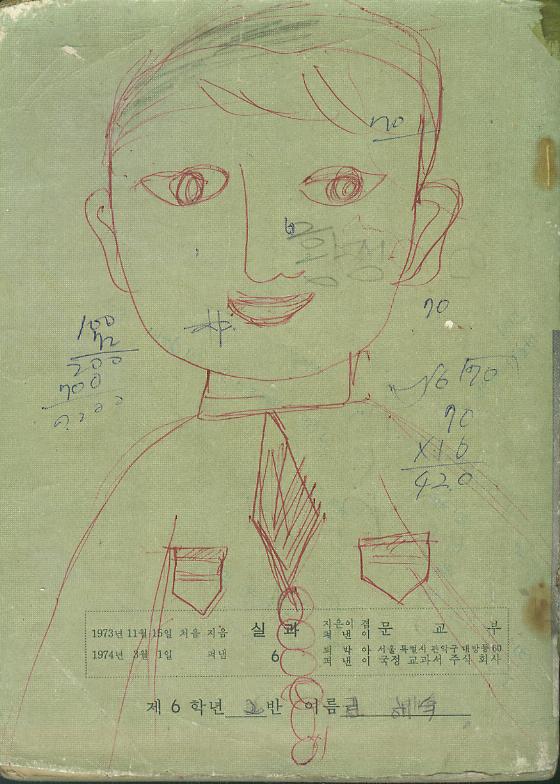 70
62
황성
70
100
72
200
700
7200
16 70
70
X16
420
1973년 11월 15일 처음 지음
1974년 3월 1일 펴냄
실 과
6
지은이 겸
펴 낸 이
문 교 부
박 아
펴 낸 이
서울 특별시 관악구 대방동 60
국정 교과서 주식 회사
제 6 학년 2 반 이름